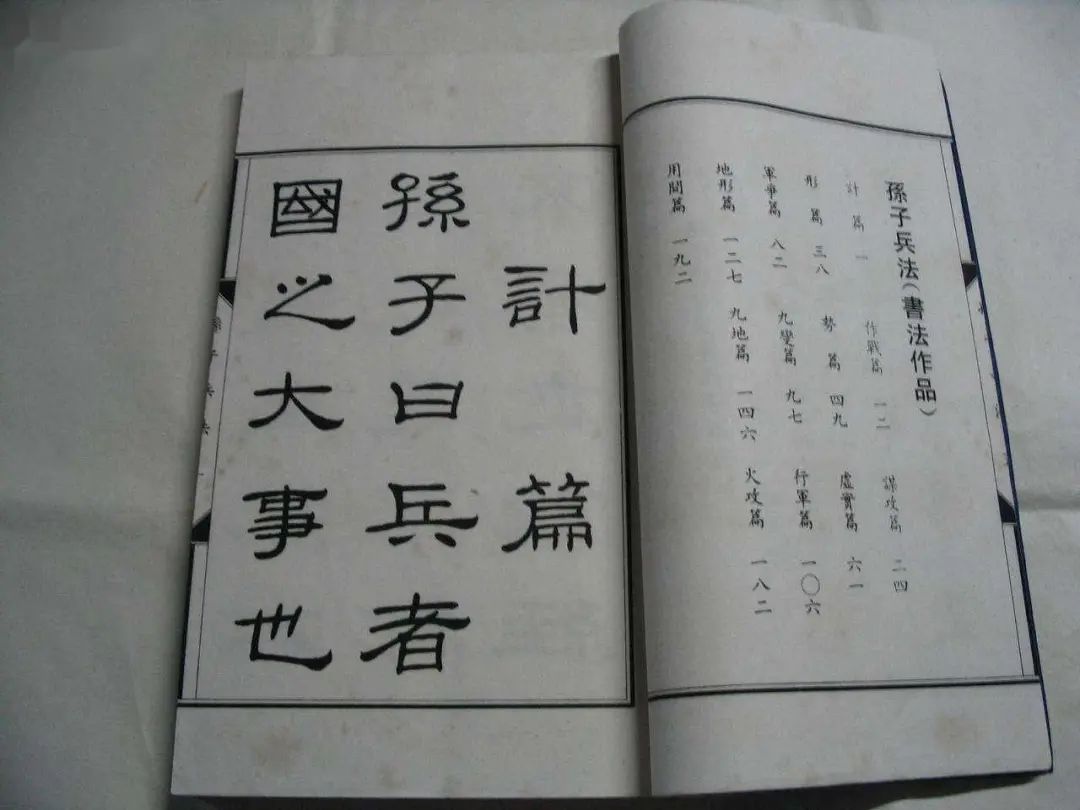 孫子兵法（書法作品）
計篇 一 作戰篇 一二 謀攻篇 二四
形篇 三八 勢篇 四九 虛實篇 六一
軍爭篇 八二 九變篇 九七 行軍篇 一〇六
地形篇 一二七 九地篇 一四六 火攻篇 一八二
用間篇 一九二
計篇
孫子曰兵者
國之大事也